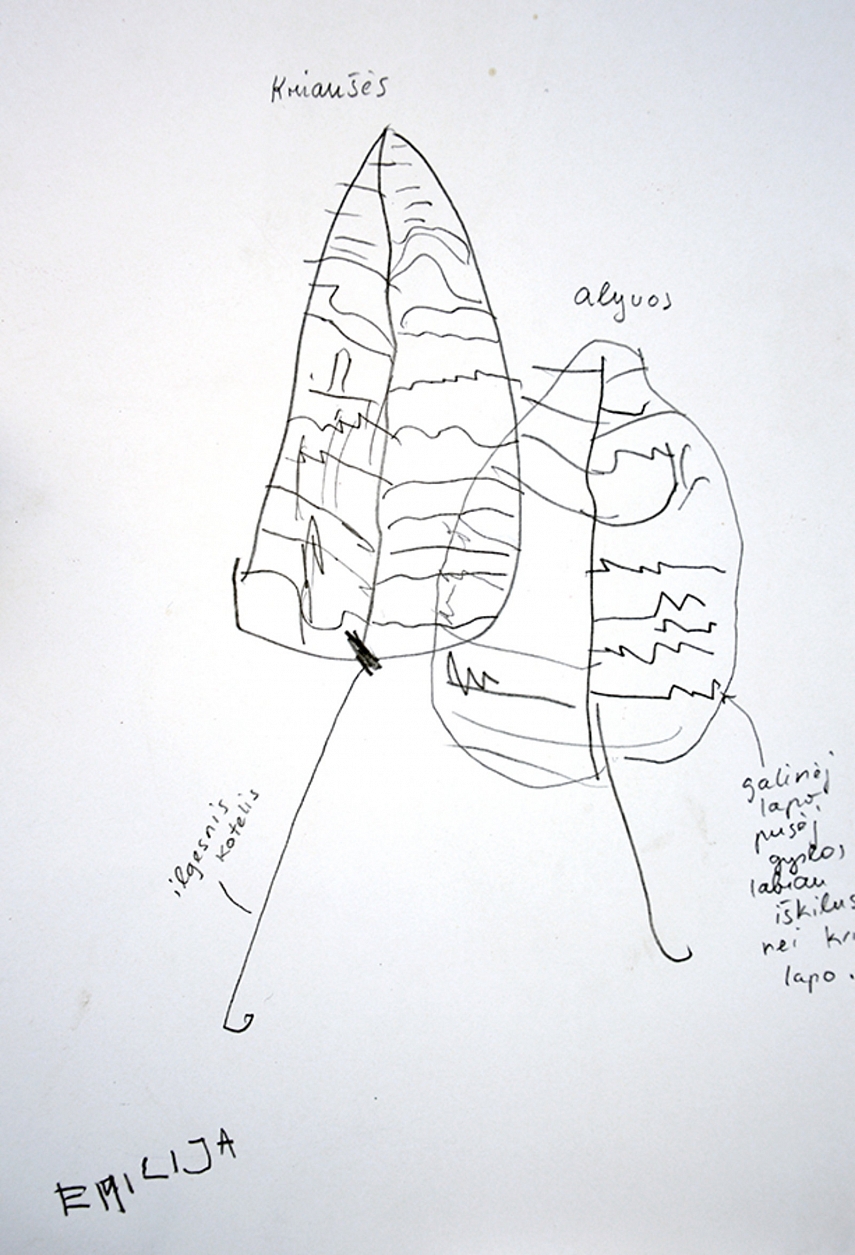 Kriaušės
alyvos
ilgesnis
kotelis
galinėj
lapo
pusėj
gyslos
labiau
iškilus
nei kri
lapo.
EMILIJA